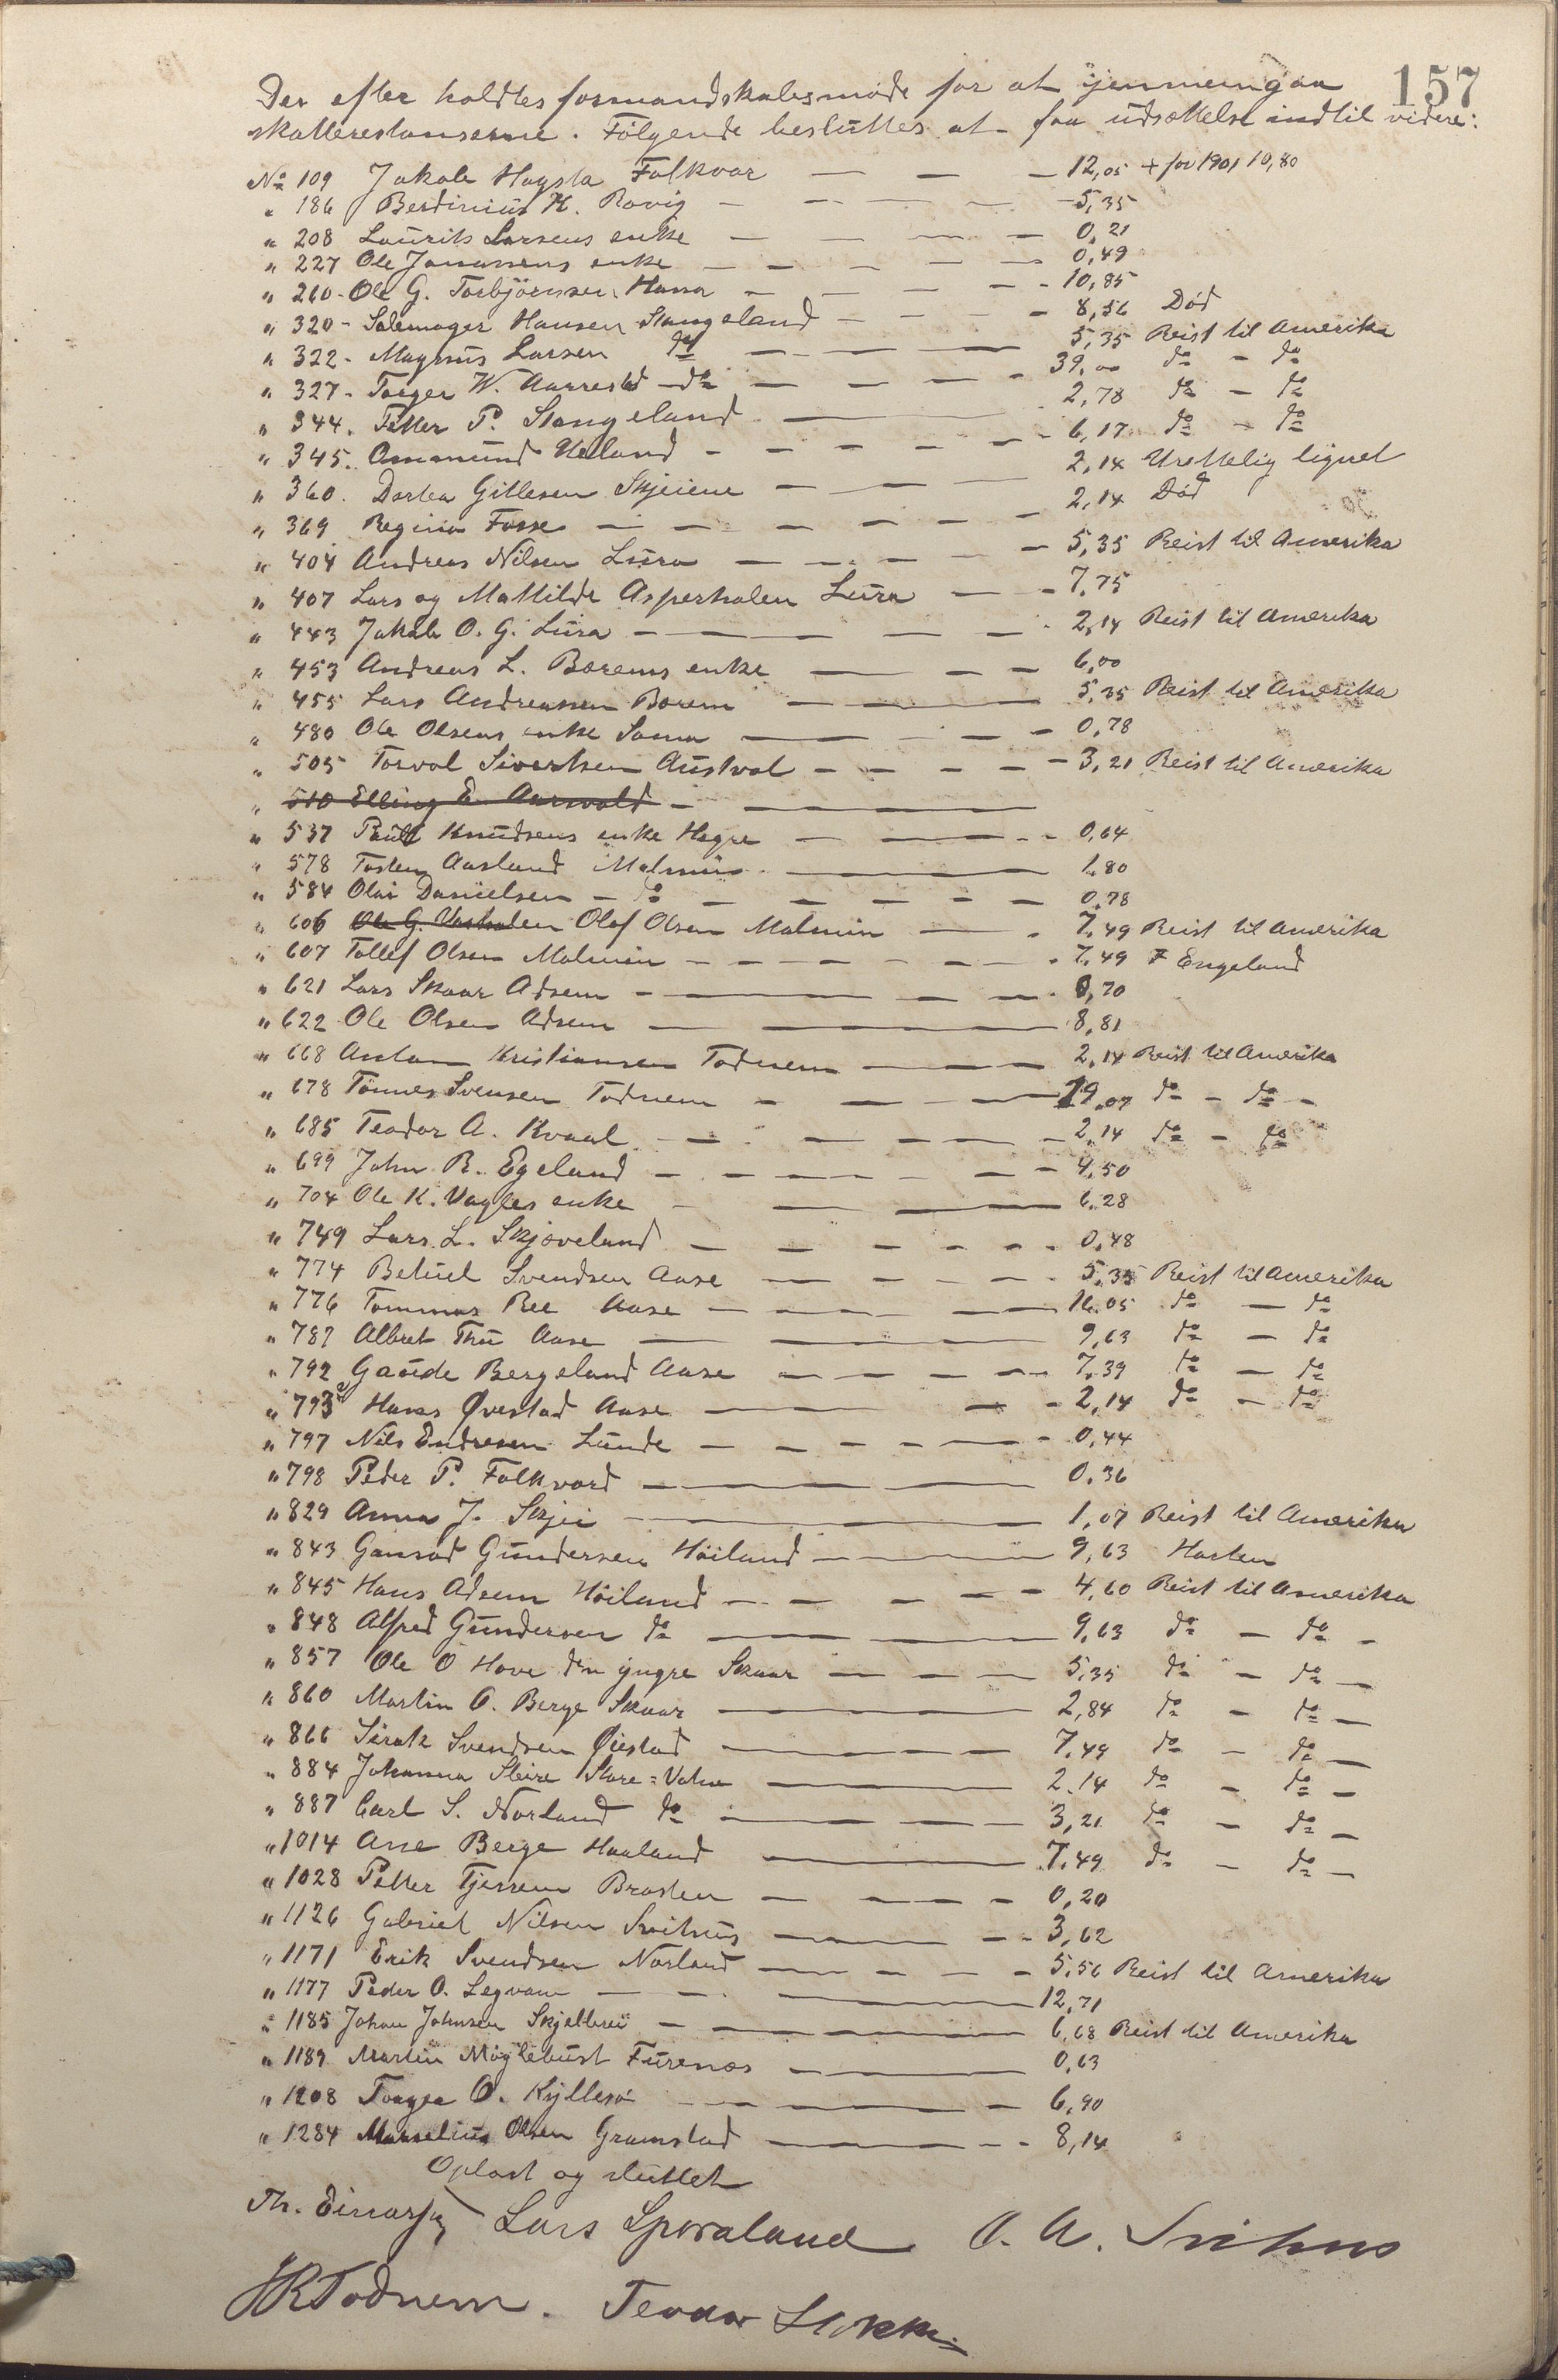 157
Der efter holdtes formandskabsmøde for at gjennemgaa
skatterestanserne. Følgende besluttes at faa udsættelse indtil videre:
No 109 Jakob Hagsta Folkvor — — — 12,05 + for 1901 10,80
" 186 Berdinius H. Rovig — — — 5,35
" 208 Laurits Larsens enke — — — 0,21
" 227 Ole Jonassens enke — — — 0,49
" 260 - Ole G. Torbjörnsen Hana — — — 10,85
" 320 - Salemager Hansen Stangeland — — — 8,56 Död
" 322 - Magnus Larsen do — — — 5,35 Reist til Amerika
" 327 - Torger W. Aarrestad - do — — — 39,00 do - do
" 344. Petter P. Stangeland — — 2,78 do - do
" 345. Ommund Heiland — — — 6,17 do - do
" 360. Dortea Gitlesen Skjeiene — — — 2,14 Urettelig lignet
" 369 Regina Fosse — — — 2,14 Död
" 404 Andreas Nilsen Lura — — — 5,35 Reist til Amerika
" 407 Lars og Mathilde Asperholen Lura — — 7,75
" 443 Jakob O. G. Lura — — — 2,14 Reist til Amerika
" 453 Andreas L. Borems enke — — — 6,00
" 455 Lars Andreassen Borem — — 5,35 Reist til Amerika
" 480 Ole Olsens enke Soma — — — 0,78
" 505 Torval Sivertsen Austvol — — — 3,21 Reist til Amerika
" 510 Elling E. Aarvold — —
" 537 Paul Knudsens enke Hegre — — — 0,64
" 578 Tosten Aasland Malmin — — 1,80
" 584 Olai Danielsen - do — — — 0,78
" 606 Ole G. Olaf Olsen Malmin — — 7,49 Reist til Amerika
" 607 Tollef Olsen Malmin — — — 7,49 " Engeland
" 621 Lars Skaar Adsem — — — 0,70
" 622 Ole Olsen Adsem — — 8,81
" 668 Anton Kristiansen Todnem — — — 2,14 Reist til Amerika
" 678 Tönnes Svensen Todnem — — — 19,07 do - do -
" 685 Teodor A. Kvaal — — — 2,14 do - do
" 699 John R. Egeland — — — 4,50
" 704 Ole K. Vagles enke — — — 6,28
" 749 Lars L. Skjoveland — — — 0,48
" 774 Betuel Svendsen Aase — — — 5,35 Reist til Amerika
" 776 Tommas Ree Aase — — — 16,05 do — do
" 787 Albret Thu Aase — — — 9,63 do — do
" 792 Gaude Bergeland Aase — — — 7,39 do — do
" 793 Hans Øvestad Aase — — — 2,14 do — do
" 797 Nils Endresen Lunde — — — 0,44
" 798 Peder P. Folkvord — — — 0,36
" 829 Anna J. Skjei — — — 1,07 Reist til Amerika
" 843 Gunsad Gundersen Höiland — — 9,63 Horten
" 845 Hans Adsem Höiland — — — 4,60 Reist til Amerika
" 848 Alfred Gundersen do — — — 9,63 do — do -
" 857 Ole O Hove den yngre Skaar — — — 5,35 do - do —
" 860 Martin O. Berge Skaar — — 2,84 do - do —
" 866 Sirak Svendsen Øiestad — — — 7,49 do - do —
" 884 Johanna Store = Vatne — — 2,14 do - do —
" 887 Carl S. Norland do — — — 3,21 do - do —
" 1014 Ane Berge Haaland — — 7,49 do - do —
" 1028 Petter Tjessem Brosten — — — 0,20
" 1126 Gabriel Nilsen Svihus — — — 3,62
" 1171 Erik Svendsen Norland — — — 5,56 Reist til Amerika
" 1177 Peder O. Legvam — — — 12,71
" 1185 Johan Johnsen Skjelbrei — — — 6,68 Reist til Amerika
" 1189 Martin Möglebust Furenos — — 0,63
" 1208 Torger O. Kyllesö — — — 6,90
" 1284 Marselius Olsen Gramstad — — — 8,14
Oplæst og sluttet
Th. Einarsen Lars Sporaland O. A. Svihus
JRTodnem. Teodor Stokke